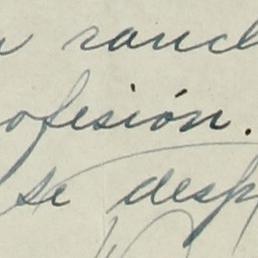 ranch
ofesión.
se desp